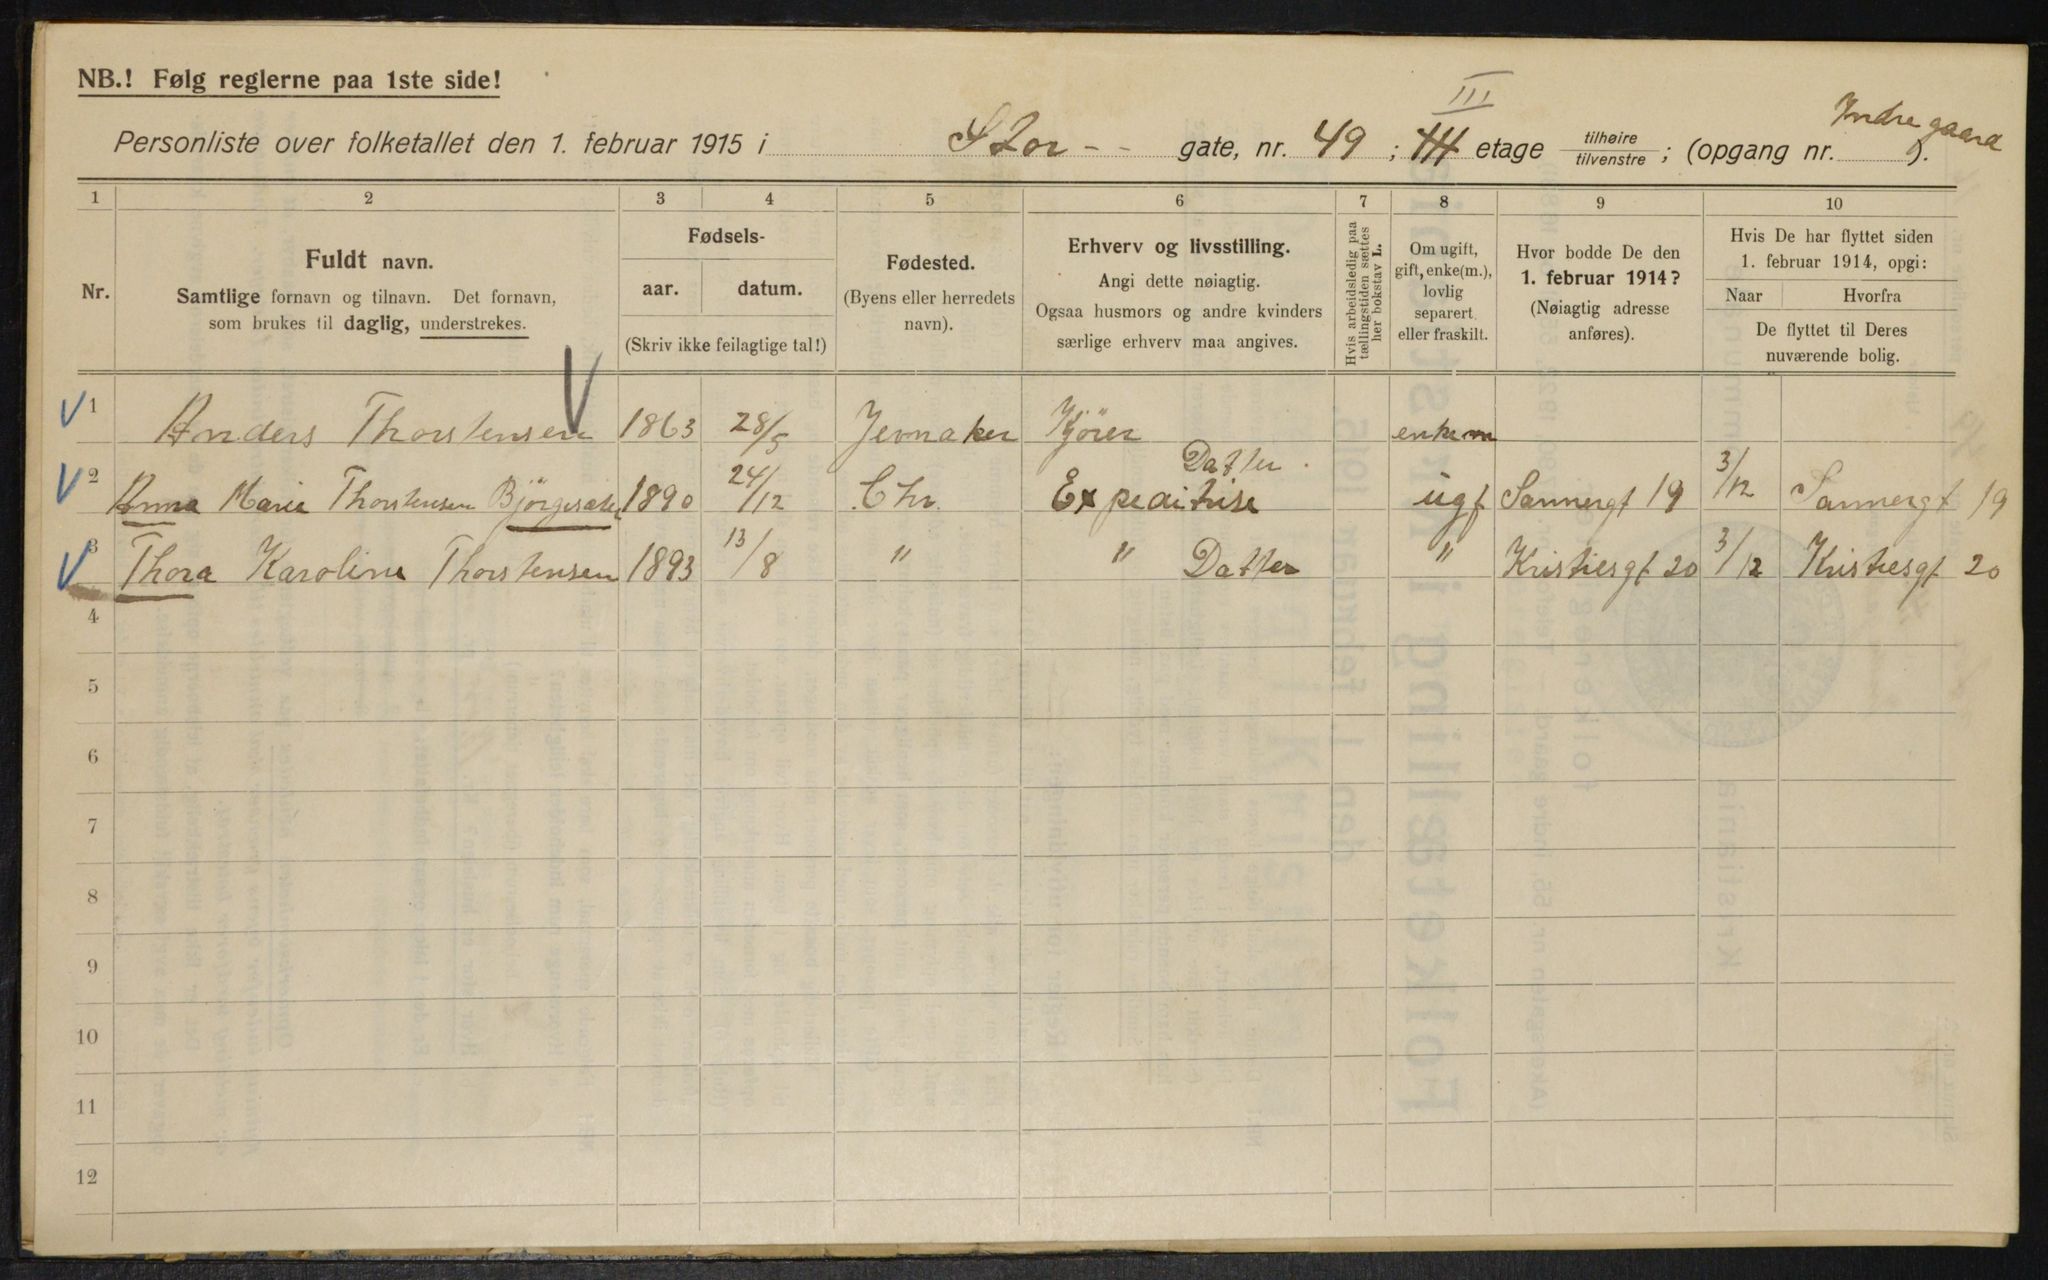 NB.! Følg reglerne paa 1ste side!
III
Indre gaard
Personliste over folketallet den 1. februar 1915 i Stor - - gate, nr. 49 ; etage tilhøire / tilvenstre ; (opgang nr. ).
1 2 3 4 5 6 7 8 9 10
Nr.
Fuldt navn.
Samtlige fornavn og tilnavn. Det fornavn,
som brukes til daglig, understrekes.
Fødsels-
aar. datum.
(Skriv ikke feilagtige tal!)
Fødested.
(Byens eller herredets
navn).
Erhverv og livsstilling.
Angi dette nøiagtig.
Ogsaa husmors og andre kvinders
særlige erhverv maa angives.
Hvis arbeidsledig paa
tællingstiden sættes
her bokstav L.
Om ugift,
gift, enke(m.),
lovlig
separert
eller fraskilt.
Hvor bodde De den
1. februar 1914?
(Nøiagtig adresse
anføres).
Hvis De har flyttet siden
1. februar 1914, opgi:
Naar Hvorfra
De flyttet til Deres
nuværende bolig.
1 Anders Thorstensen 1863 28/5 Jevnaker Kjörer enkem
2 Anna Marie Thorstensen 1890 24/12 Chr. Datter. Expeditrise ugf Sannergt 19 3/12 Sannergt 19
3 Thora Karoline Thorstensen 1893 13/8 " " Datter " Kristiesgt 20 3/12 Kristiesgt 20
4
5
6
7
8
9
10
11
12